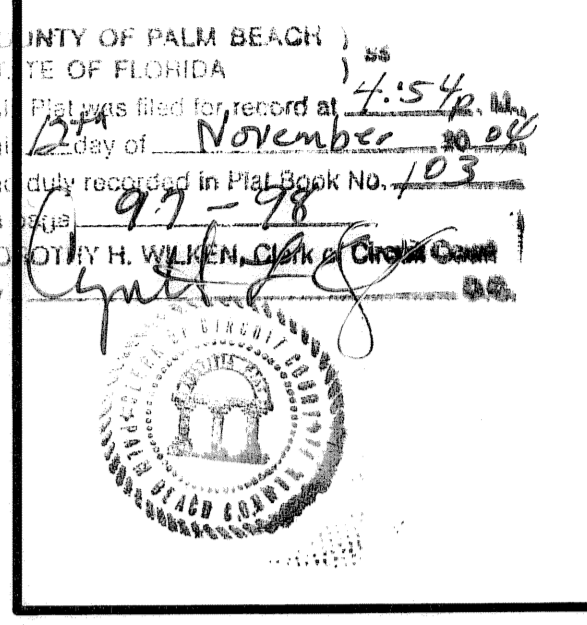 UNTY OF PALM BEACH ) ss
TE OF FLORIDA )
Plat was filed for record at 4:54 p. M.,
12th day of November 2004
duly recorded in Plat Book No. 103
page 97-98
OROTHY H. WILKEN, Clerk of Circuit Court
D.C.
CLERK OF CIRCUIT COURT
PALM BEACH COUNTY